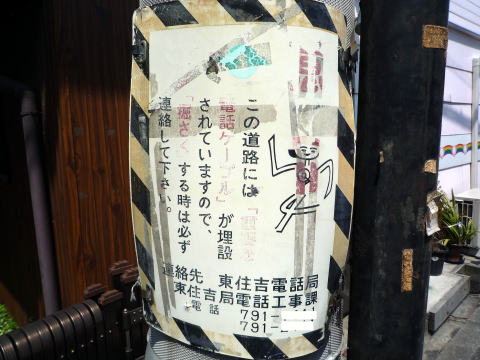 この道路には「電電公社
電話ケーブル」が埋設
されていますので、
「掘さく」する時は必ず
連絡して下さい。
連絡先 東住吉電話局
東住吉局電話工事課
電話 791-
791-